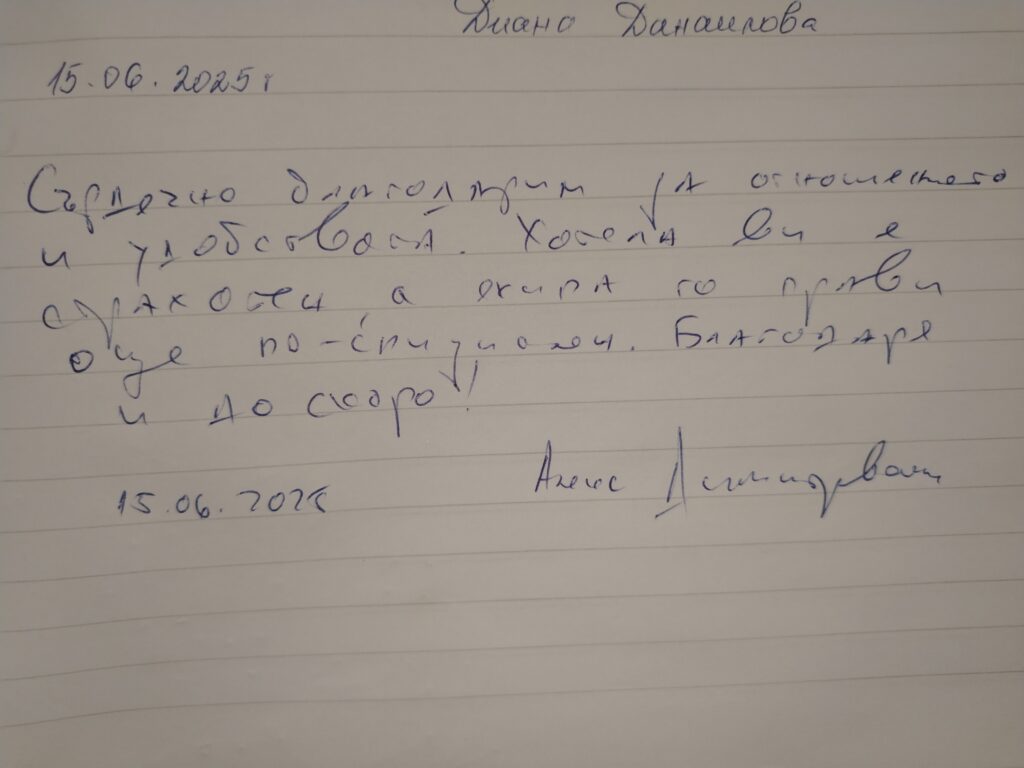 Диана Данаилова
15.06.2025г
Сърдечно благодарим за отношението
и удобствата. Хотела ви е
страхотен, а екипа го прави
още по-
Благодаря
и до скоро!
15.06.2025 Алекс